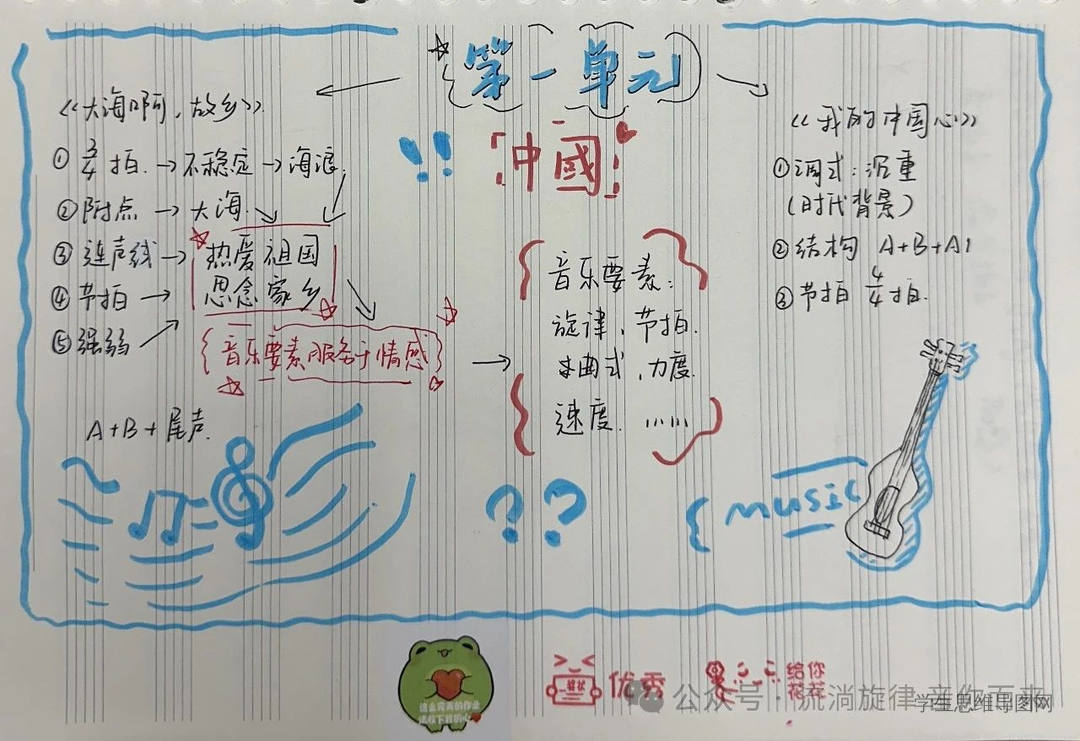 第一单元
中國
《大海啊，故乡》
① 3/4拍 → 不稳定 → 海浪
② 附点 → 大海
③ 连声线 → 热爱祖国
④ 节拍 → 思念家乡
⑤ 强弱
音乐要素服务于情感
A+B+尾声
音乐要素：
旋律、节拍
曲式、力度
速度……
《我的中国心》
① 调式：沉重
（时代背景）
② 结构 A+B+A1
③ 节拍 4/4拍
!!
??
music
优秀
给你花花
公众号·流淌旋律
学生思维导图网